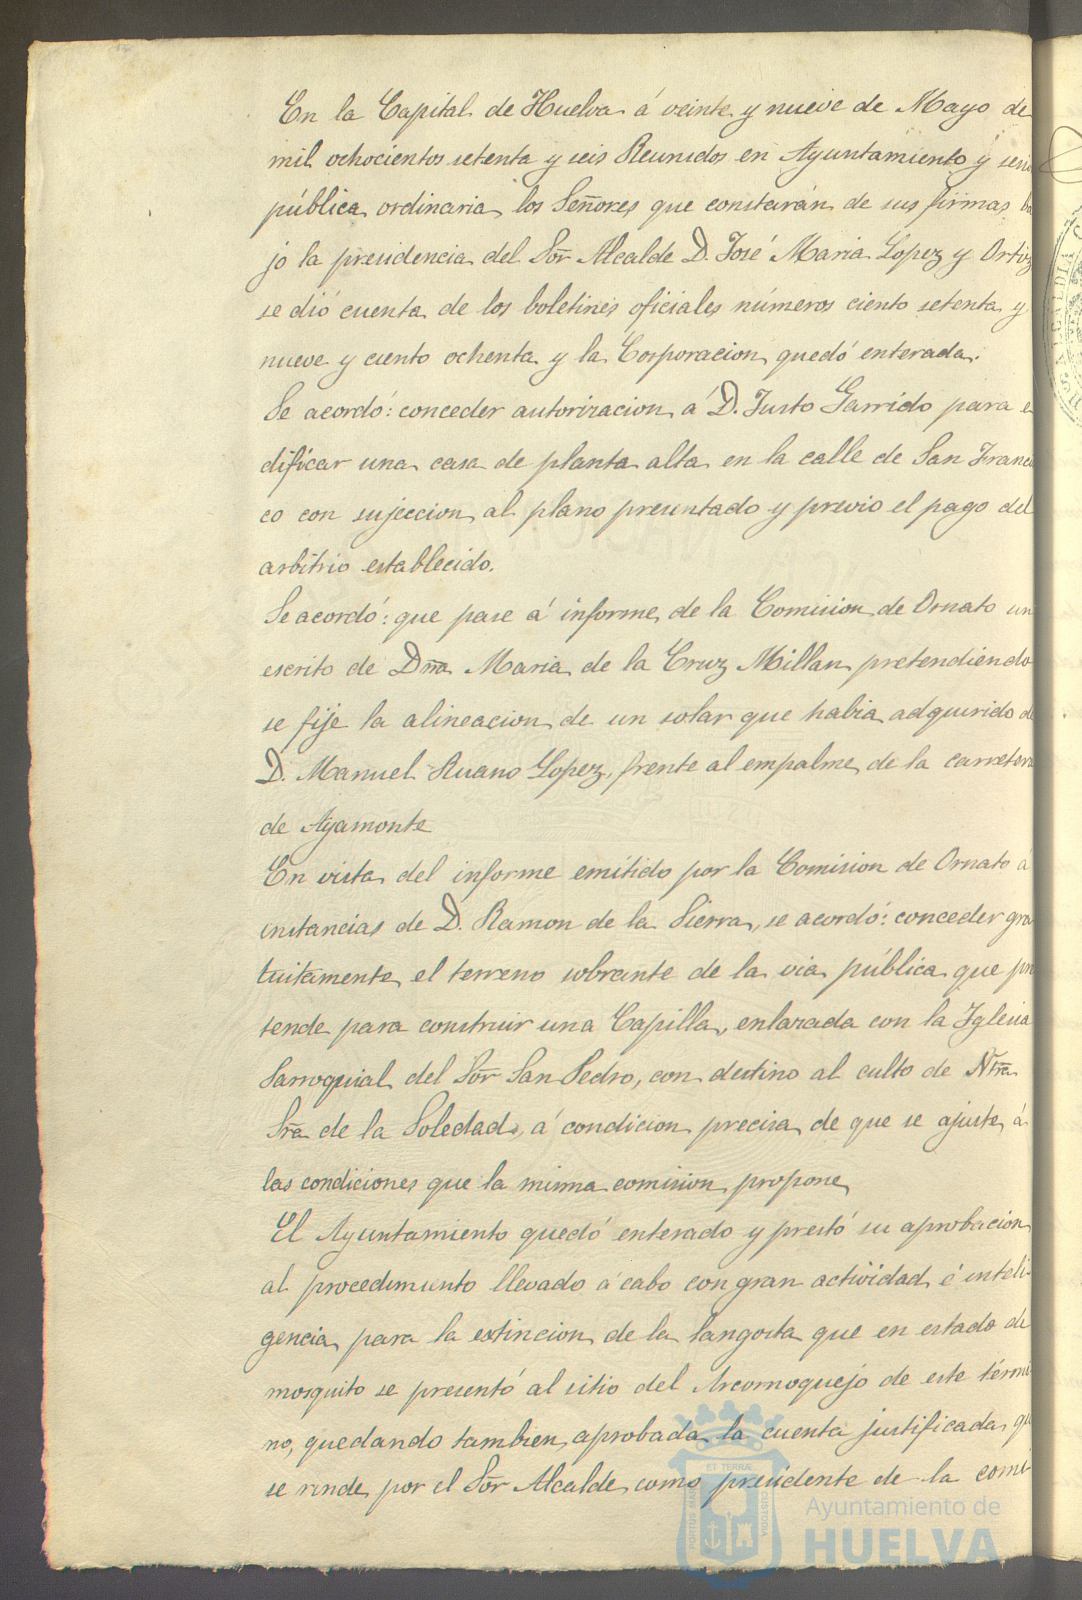 En la Capital de Huelva á veinte y nueve de Mayo de
mil ochocientos setenta y seis Reunidos en Ayuntamiento y sesi
pública ordinaria los Señores que constarán de sus firmas ba
jo la presidencia del Sor Alcalde D. José Maria Lopez y Ortiz
se dió cuenta de los boletines oficiales números ciento setenta y
nueve y ciento ochenta y la Corporacion quedó enterada.
Se acordó: conceder autorizacion á D. Justo Garrido para e
dificar una casa de planta alta en la calle de San Francis
co con sujeccion al plano presentado y previo el pago del
arbitrio establecido.
Se acordó: que pase á informe de la Comision de Ornato un
escrito de Dña Maria de la Cruz Millan pretendiendo
se fije la alineacion de un solar que habia adquirido de
D. Manuel Ruano Lopez, frente al empalme de la carretera
de Ayamonte
En vista del informe emitido por la Comision de Ornato á
instancias de D. Ramon de la Sierra, se acordó: conceder gra
tuitamente el terreno sobrante de la via pública que pre
tende para construir una Capilla, enlazada con la Iglesia
Parroquial del Sor San Pedro, con destino al culto de Ntra
Sra de la Soledad, á condicion precisa de que se ajuste á
las condiciones que la misma comision propone
El Ayuntamiento quedó enterado y prestó su aprobacion
al procedimiento llevado á cabo con gran actividad é inteli-
gencia para la extincion de la langosta que en estado de
mosquito se presentó al sitio del Arcornoquejo de este térmi
no, quedando tambien aprobada la cuenta justificada que
se rinde por el Sor Alcalde como presidente de la comi
PORTUS MARIS ET TERRÆ CUSTODIA
Ayuntamiento de
HUELVA